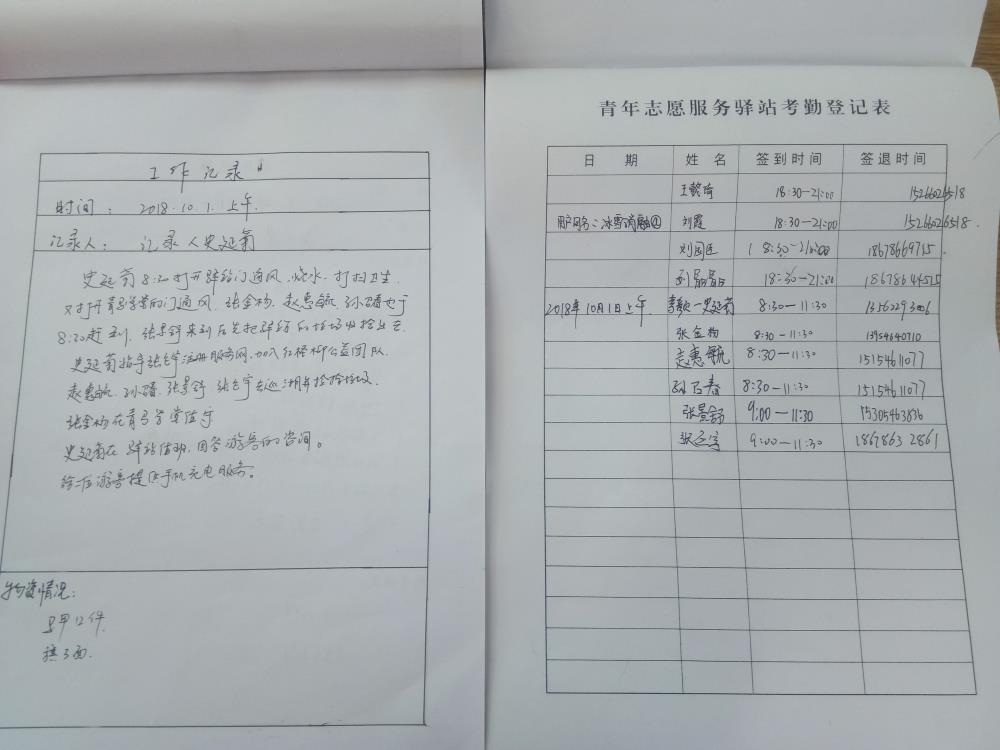 工作记录
时间：2018.10.1.上午.
记录人：记录人史延菊
史延菊8:20打开驿站门通风.烧水.打扫卫生.
又打开青马学堂的门通风.张金杨.赵惠毓.孙
8:20赶到.张景舒来到后先把驿站的垃圾收拾
史延菊指导张 注册服务网.加入红 柳公益团队.
赵惠毓.孙 .张景舒.张 宇去巡湖并捡拾垃圾.
张金杨在青马学堂值守
史延菊在驿站值班.回答游客的咨询。
给一位游客提供手机充电服务。
物资情况：
马甲12件.
旗3面.
青年志愿服务驿站考勤登记表
日期 姓名 签到时间 签退时间
王 琦 18:30-21:00 15266026518
用户网名：冰雪消融① 刘霞 18:30-21:00 15266026518.
刘国臣 18:30-21:00 18678669715.
晶晶 18:30-21:00 18678644515
2018年10月1日上午 史延菊 8:30-11:30 13562293006
张金杨 8:30-11:30 13954640710
赵惠毓 8:30-11:30 15154611077
孙 春 8:30-11:30 15154611077
张景舒 9:00-11:30 15305463836
张 宇 9:00-11:30 18678632861